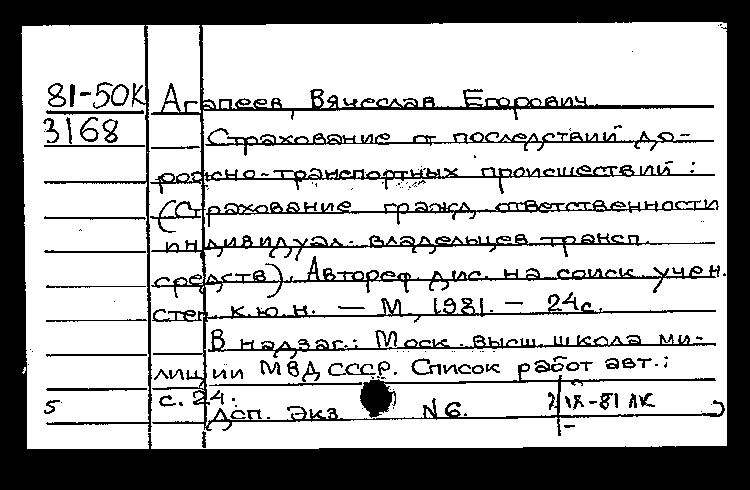 81-50К Агапеев, Вячеслав Егорович
3168 Страхование от последствий до-
рожно-транспортных происшествий :
(Страхование гражд. ответственности
индивидуал. владельцев трансп.
средств). Автореф. дис. на соиск. учен.
степ. к.ю.н. — М., 1981. — 24с.
В надзаг.: Моск. высш. школа ми-
лиции МВД СССР. Список работ авт.:
с. 24.
5 Дсп. Экз. N 6. 2 IX-81 ЛК